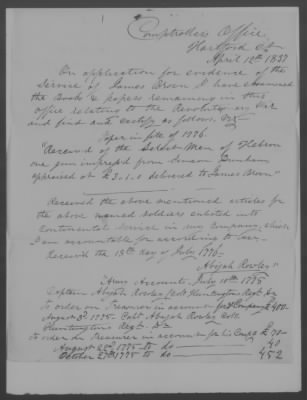 Comptrollers Office
Hartford Ct
April 12th 1837
On application for evidence of the
Service of James Brown I have examined
the books & papers remaining in this
office relating to the Revolutionary War
and find and certify as follows. Viz
Paper in file of 1776
"Received of the Select Men of Hebron
one gun impressed from
appraised at £ 2.1.0 delivered to James Brown"
Received the above mentioned articles for
the above named soldiers enlisted into
Continental service in my Company, which
I am accountable for according to Law
Received the 13th day of July 1776
Abijah Rowlee"
Accounts July 10th 1775
Captain Abijah Rowlee Col. Huntington Regt. Dr
to order on Treasurer in account for Company £
August 3d 1775. Capt Abijah Rowlee Col.
Huntingtons Regt. Dr
to order on Treasurer in account for his Company £
August 22d 1775 to do 40
October 27th 1775 to do 452